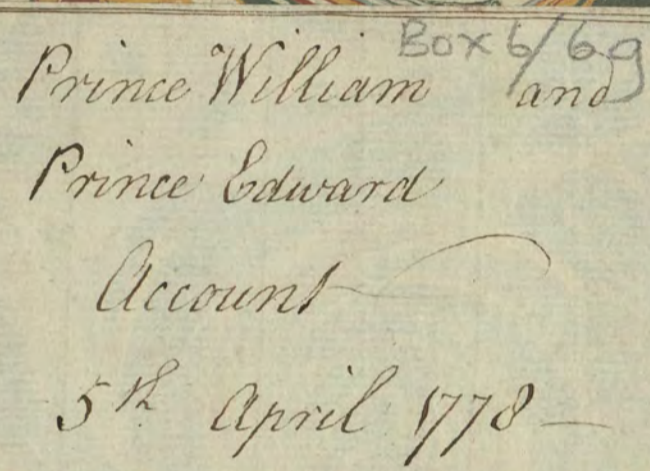 Box 6/69
Prince William and
Prince Edward
Account
5th April 1778